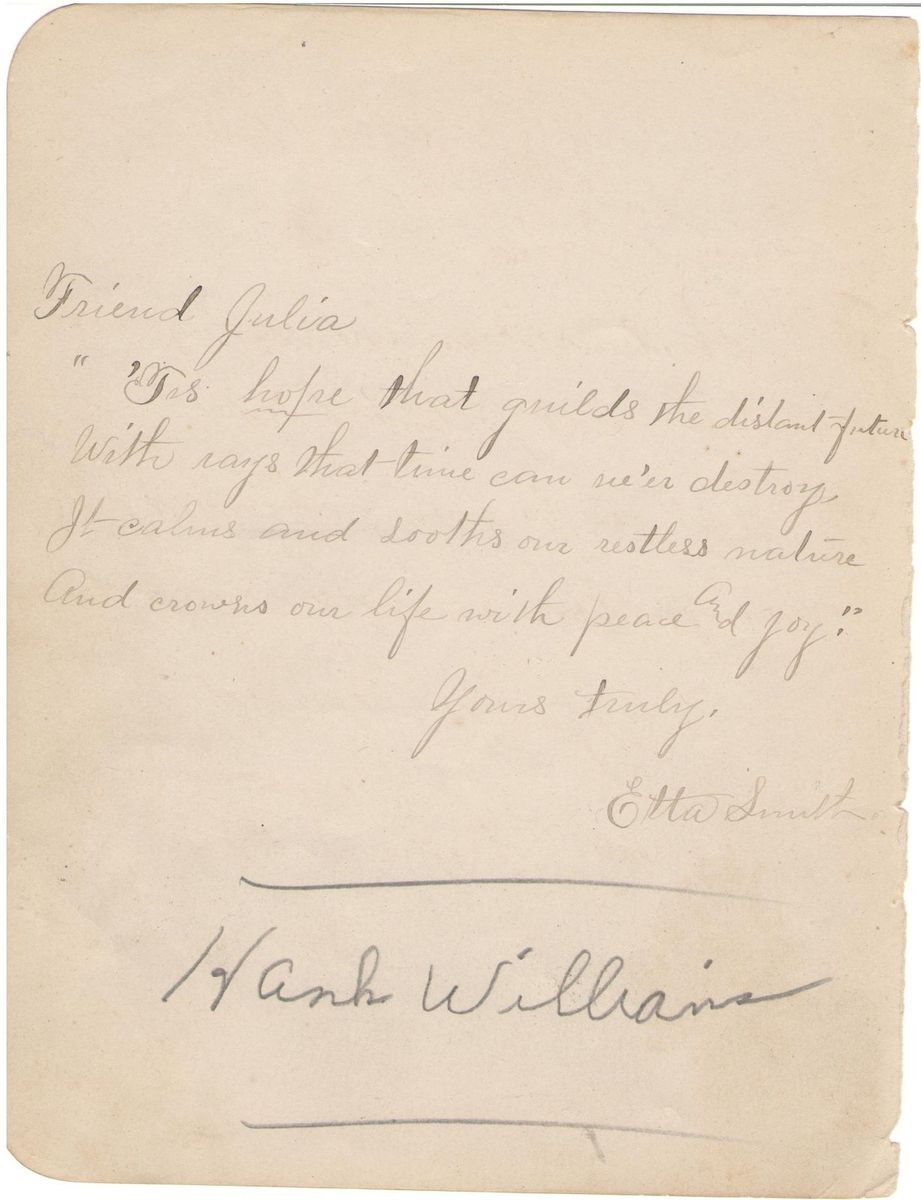 Friend Julia
" 'Tis hope that guilds the distant future
With rays that time can ne'er destroy
It calms and sooths our restless nature
And crowns our life with peace and joy."
Yours truly,
Etta Smith.
Hank Williams